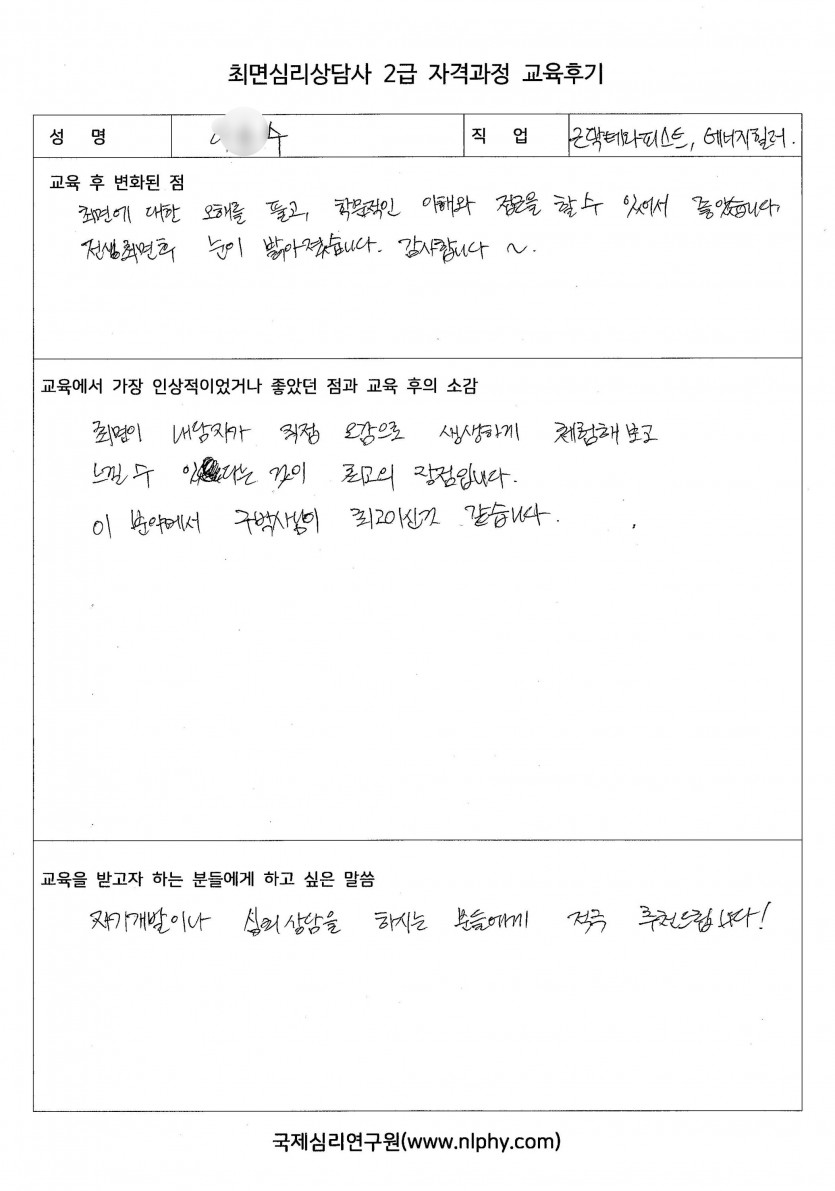 최면심리상담사 2급 자격과정 교육후기
성 명 수 직 업 테라피스트, 에너지힐러.
교육 후 변화된 점
최면에 대한 오해를 풀고, 학문적인 이해와 접근을 할 수 있어서 좋았습니다.
전생최면의 눈이 밝아졌습니다. 감사합니다 ~.
교육에서 가장 인상적이었거나 좋았던 점과 교육 후의 소감
최면이 내담자가 직접 오감으로 생생하게 체험해보고
느낄 수 있다는 것이 최고의 장점입니다.
이 분야에서 구박사님이 최고이신것 같습니다.
교육을 받고자 하는 분들에게 하고 싶은 말씀
자기개발이나 심리상담을 하시는 분들에게 적극 추천드립니다!
국제심리연구원(www.nlphy.com)